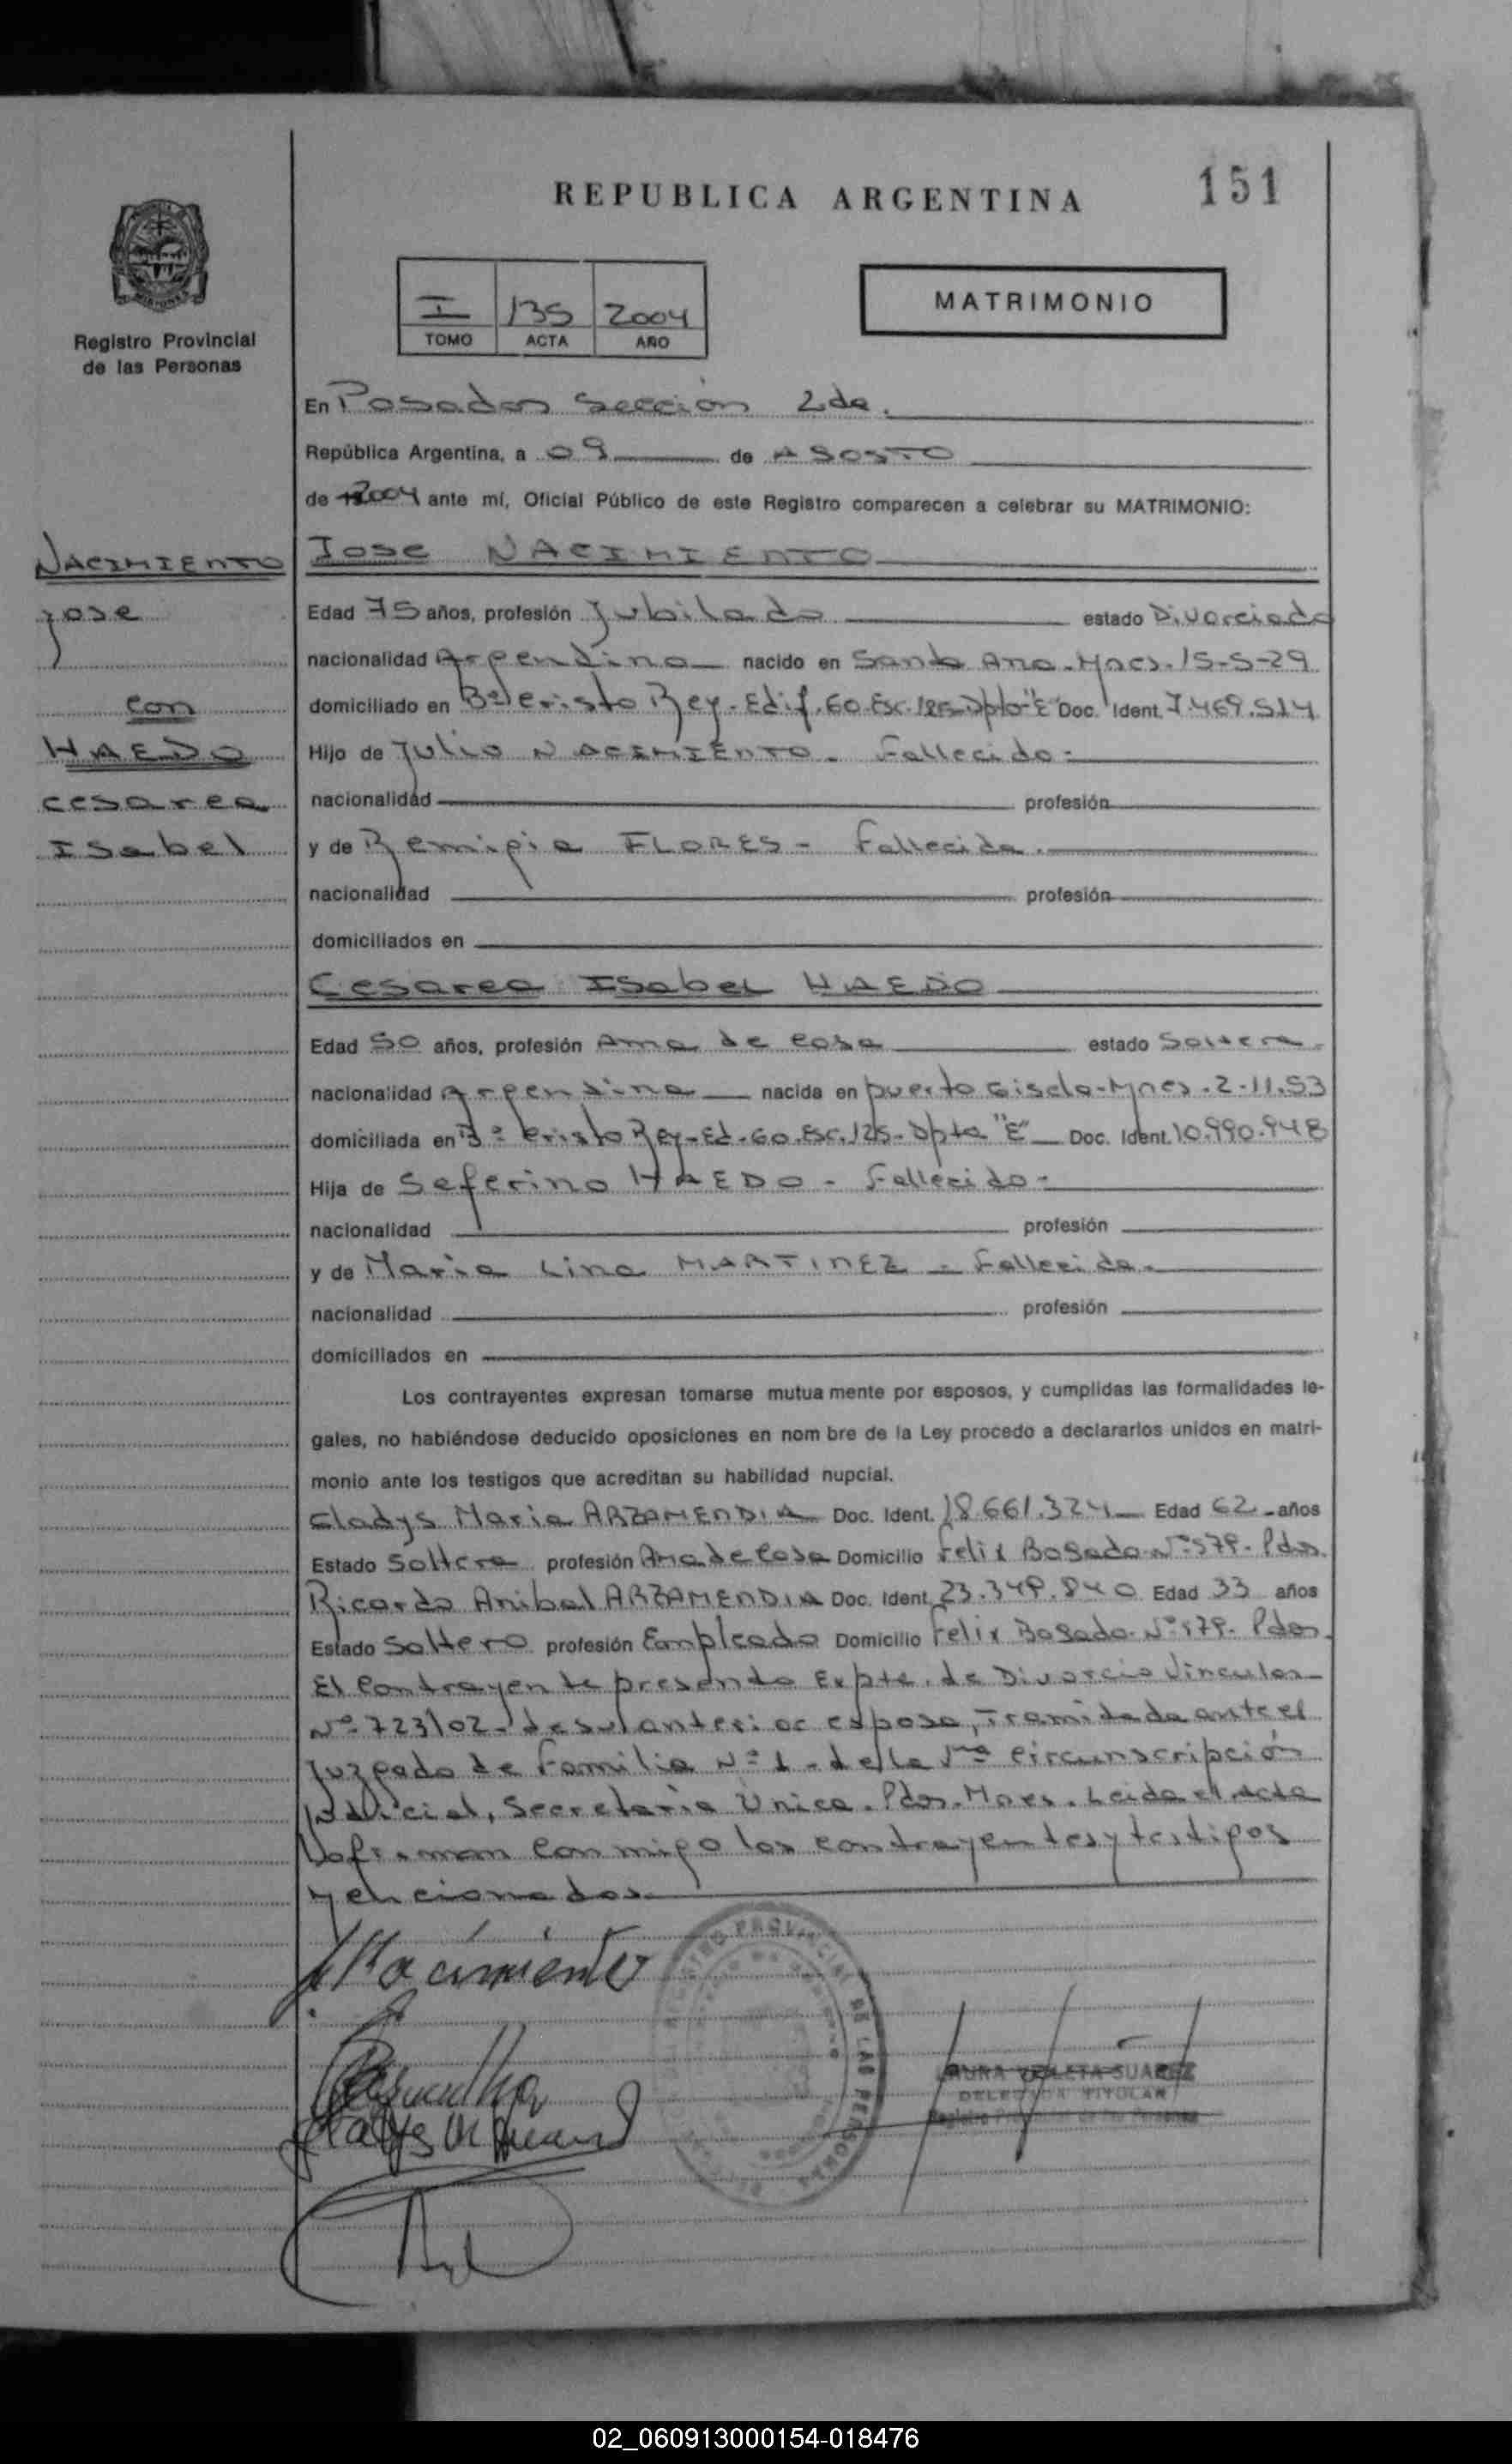 REPUBLICA ARGENTINA
151
MISIONES
Registro Provincial
de las Personas
I 135 2004
TOMO ACTA AÑO
MATRIMONIO
En Posadas Sección 2da.
República Argentina, a 09 de AGOSTO
de 2004 ante mí, Oficial Público de este Registro comparecen a celebrar su MATRIMONIO:
NACIMIENTO
Jose
con
HAEDO
Cesarea
Isabel
Jose NACIMIENTO
Edad 75 años, profesión Jubilado estado Divorciado
nacionalidad Argentino nacido en Santa Ana-Mnes. 15-5-29
domiciliado en Bº Cristo Rey-Edif. 60-Esc. 125-Dpto "E" Doc. Ident. 7.469.514
Hijo de Julio NACIMIENTO - Fallecido-
nacionalidad profesión
y de Remigia FLORES - Fallecida.
nacionalidad profesión
domiciliados en
Cesarea Isabel HAEDO
Edad 50 años, profesión Ama de Casa estado Soltera-
nacionalidad Argentina nacida en puerto Gisela-Mnes. 2-11-53
domiciliada en Bº Cristo Rey-Ed-60-Esc. 125-Dpto "E" Doc. Ident. 10.990.948
Hija de Seferino HAEDO - Fallecido-
nacionalidad profesión
y de Maria Lina MARTINEZ - Fallecida.
nacionalidad profesión
domiciliados en
Los contrayentes expresan tomarse mutua mente por esposos, y cumplidas las formalidades le-
gales, no habiéndose deducido oposiciones en nom bre de la Ley procedo a declararlos unidos en matri-
monio ante los testigos que acreditan su habilidad nupcial.
Gladys Maria ARZAMENDIA Doc. Ident. 18.661.324 Edad 62 años
Estado Soltera profesión Ama de Casa Domicilio Felix Bogado-Nº 579- Pdas.
Ricardo Anibal ARZAMENDIA Doc. Ident. 23.349.840 Edad 33 años
Estado Soltero profesión Empleado Domicilio Felix Bogado-Nº 579- Pdas.
El Contrayente presenta Expte. de Divorcio Vincular
Nº 723/02- de su anterior esposa, Tramitada ante el
Juzgado de Familia Nº 1 - de la 1ra Circunscripción
Judicial, Secretaría Unica. Pdas. Mnes. Leida el Acta
La firman Conmigo los contrayentes y testigos
Mencionados.
Nacimiento
REGISTRO PROVINCIAL DE LAS PERSONAS
LAURA VIOLETA SUAREZ
DELEGADA TITULAR
Registro Provincial de las Personas
02_060913000154-018476